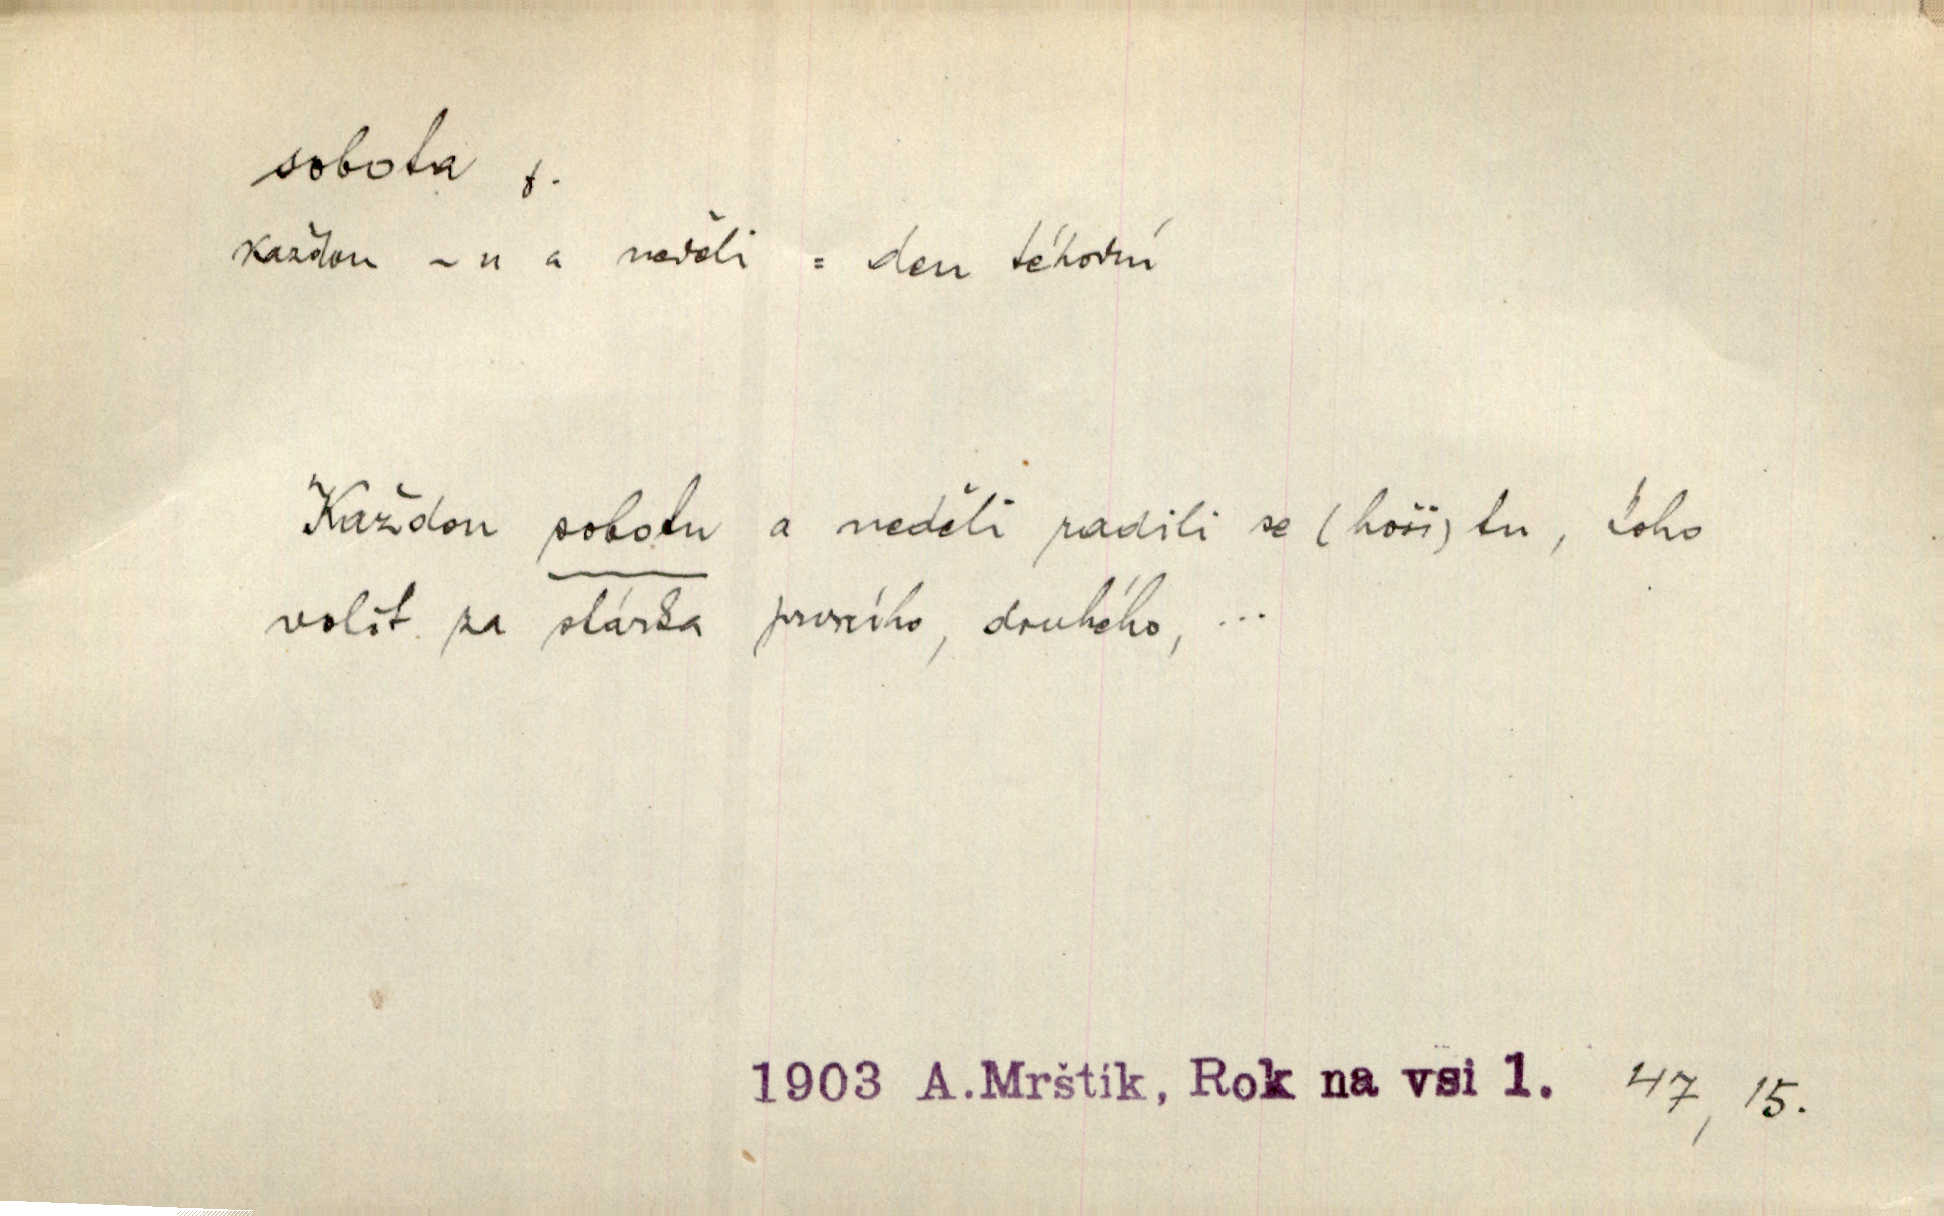 sobota f.
každou ~u a neděli = den téhodní
Každou sobotu a neděli radili se (hoši) tu, koho
volit za stárka prvního, druhého, ...
1903 A.Mrštík, Rok na vsi 1. 47, 15.